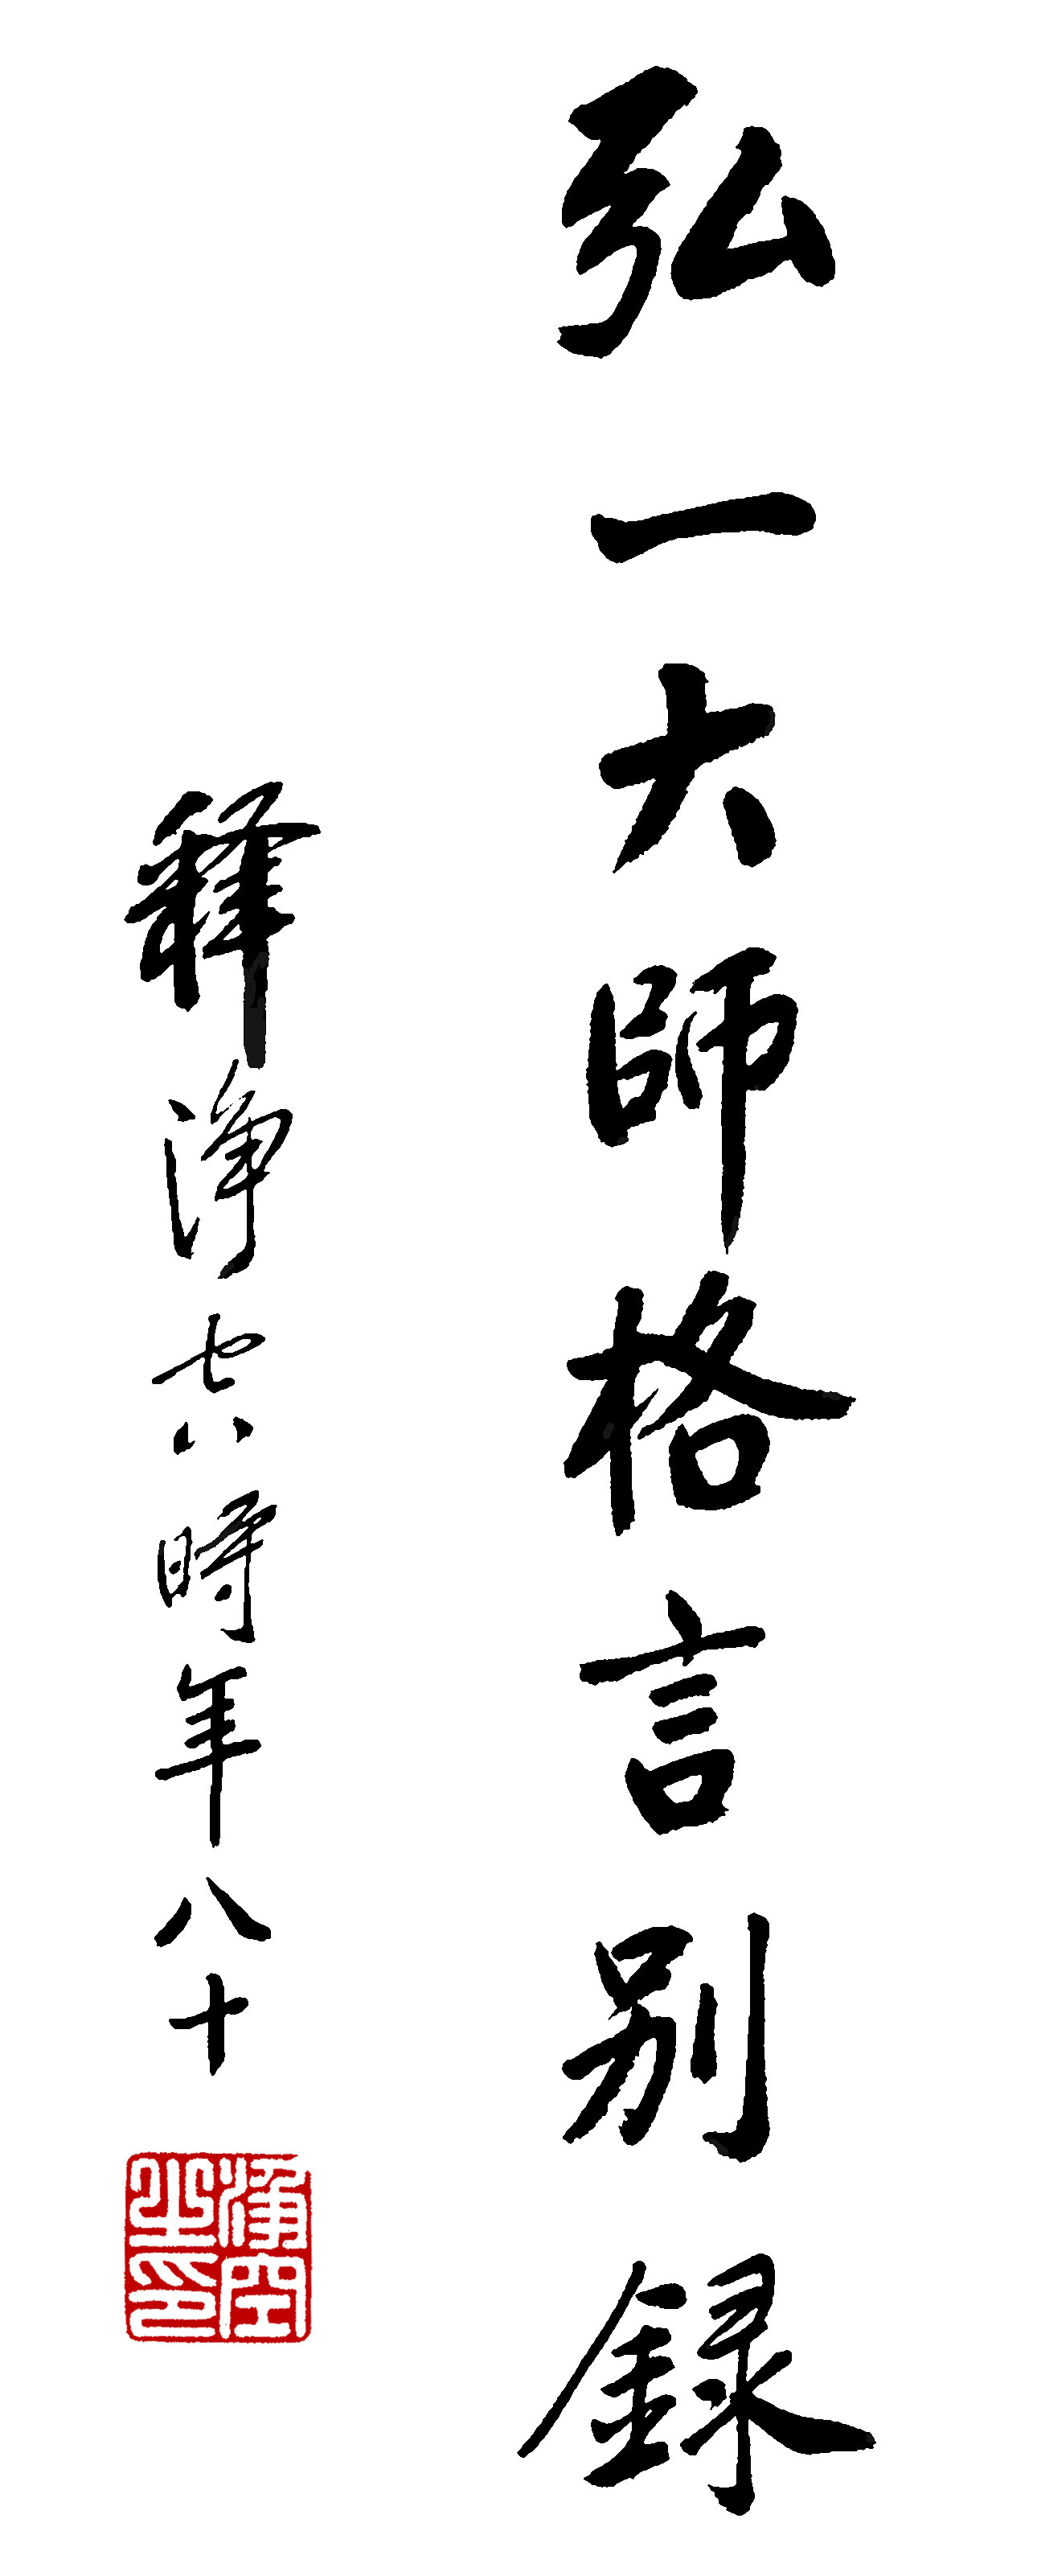 弘一大師格言别録
釋淨空時年八十
淨空
之印